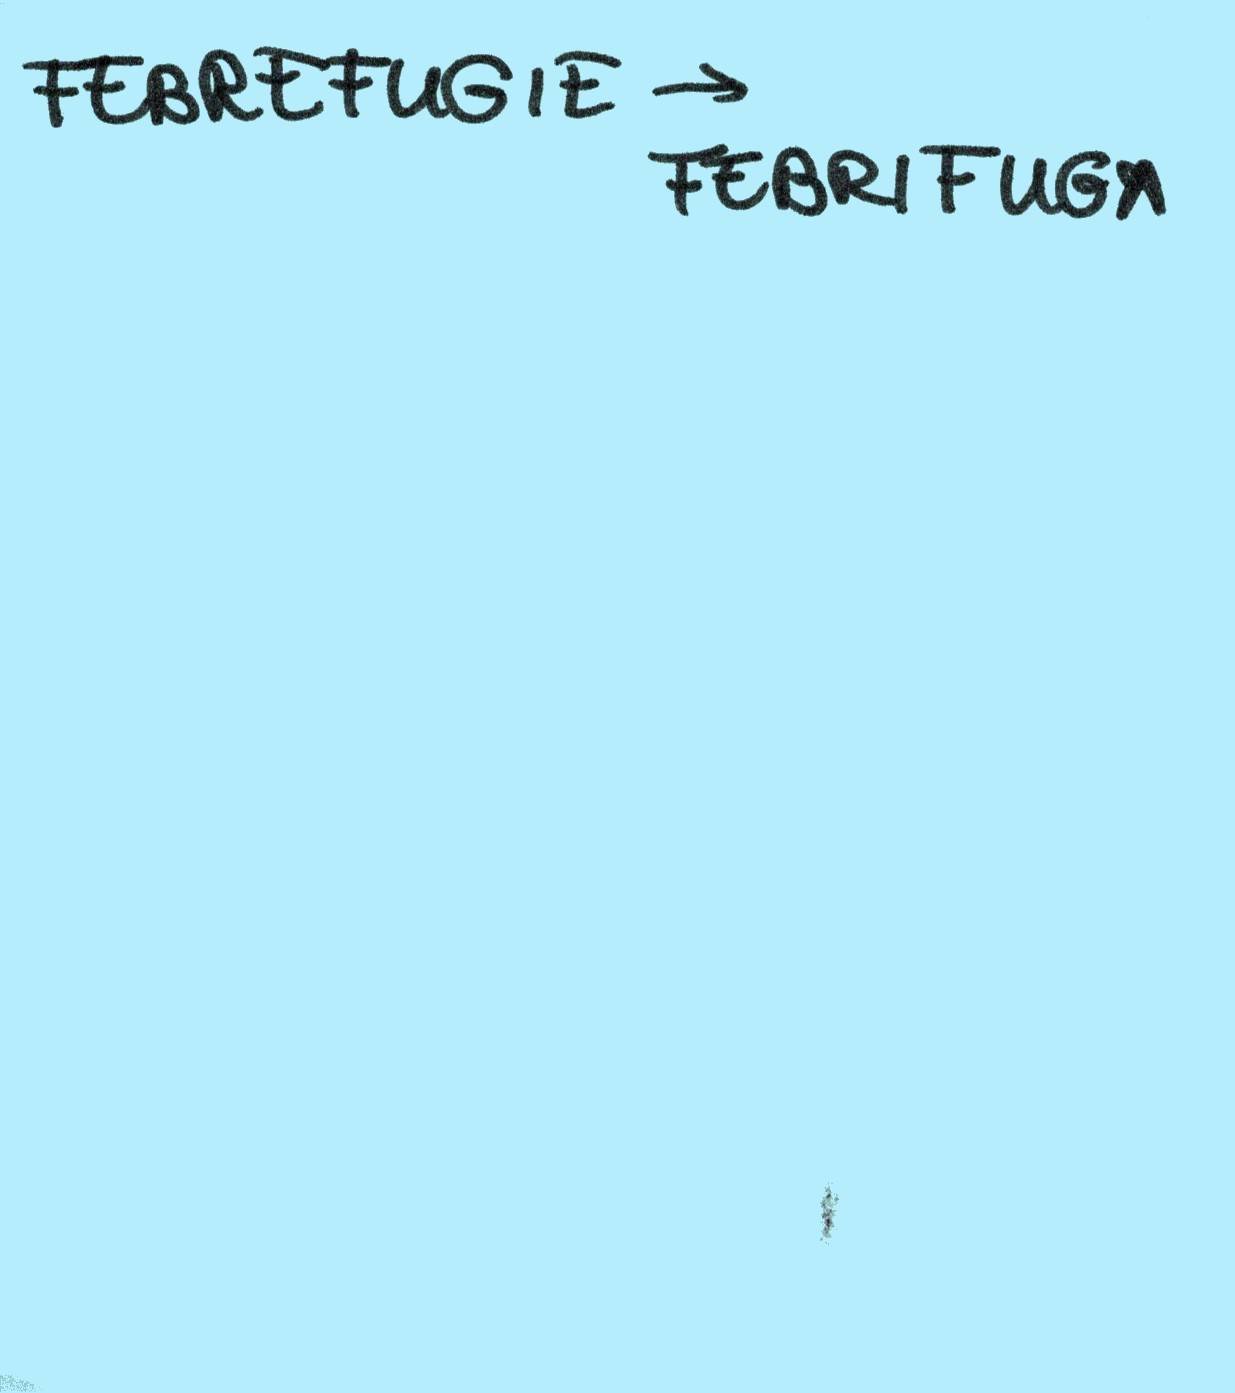 FEBREFUGIE →
FEBRIFUGA